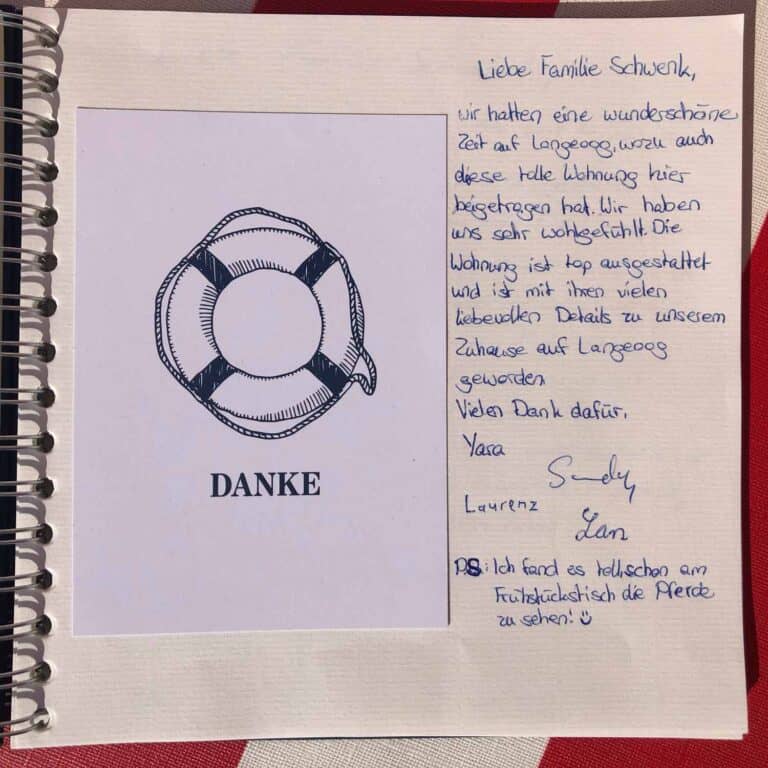 DANKE
Liebe Familie Schwenk,
wir hatten eine wunderschöne
Zeit auf Langeoog, wozu auch
diese tolle Wohnung hier
beigetragen hat. Wir haben
uns sehr wohlgefühlt. Die
Wohnung ist top ausgestattet
und ist mit ihren vielen
liebevollen Details zu unserem
Zuhause auf Langeoog
geworden
Vielen Dank dafür.
Yara
Sandy
Laurenz
Jan
P.S.: Ich fand es toll, schon am
Frühstückstisch die Pferde
zu sehen! ☺